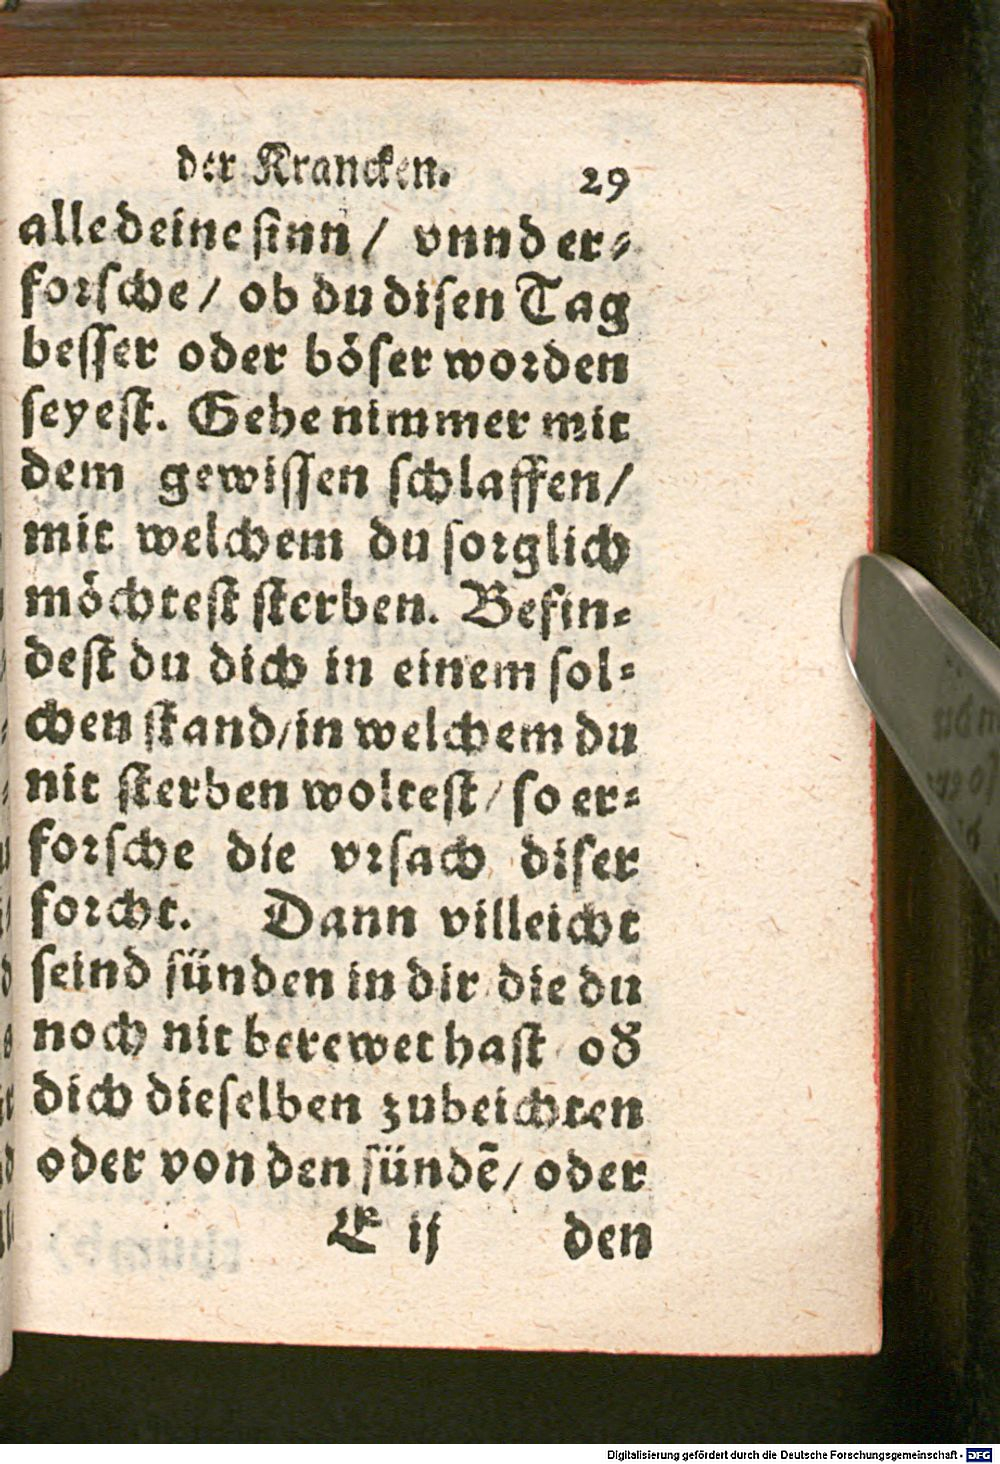 der Krancken. 29
alle deine sinn / vnnd er⸗
forsche / ob du disen Tag
besser oder böser worden
seyest. Gehe nimmer mit
dem gewissen schlaffen /
mit welchem du sorglich
möchtest sterben. Befin⸗
dest du dich in einem sol⸗
chen stand / in welchem du
nit sterben woltest / so er⸗
forsche die vrsach diser
forcht. Dann villeicht
seind sünden in dir die du
noch nit berewet hast od
dich dieselben zubeichten
oder von den sündē / oder
E ij den
Digitalisierung gefördert durch die Deutsche Forschungsgemeinschaft - DFG